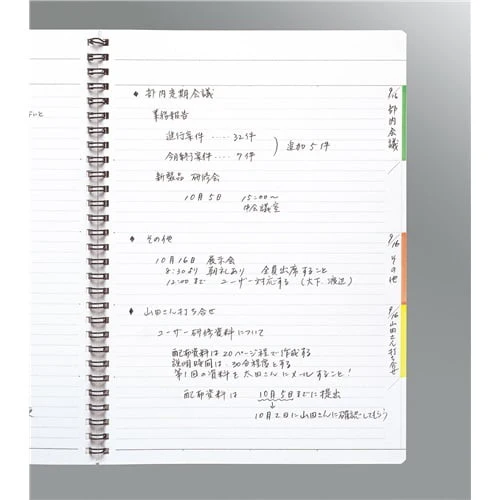 ないと
◆ 部内定期会議
業務報告
進行案件 ‥‥ 32件
今月執行案件 ‥‥ 7件
追加5件
新製品 研修会
10月5日 15:00〜
中会議室
◆ その他
10月16日 展示会
8:30より 朝礼あり 全員出席すること
12:00まで ユーザー対応する (大下、渡辺)
◆ 山田さん打ち合せ
ユーザー研修資料について
配布資料は20ページ程で作成する
説明時間は30分程度とする
第1回の資料を太田さんにメールすること!
配布資料は 10月5日までに提出
↓
10月2日に山田さんに確認してもらう
9/16 部内会議
9/16 その他
9/16 山田さん打ち合せ